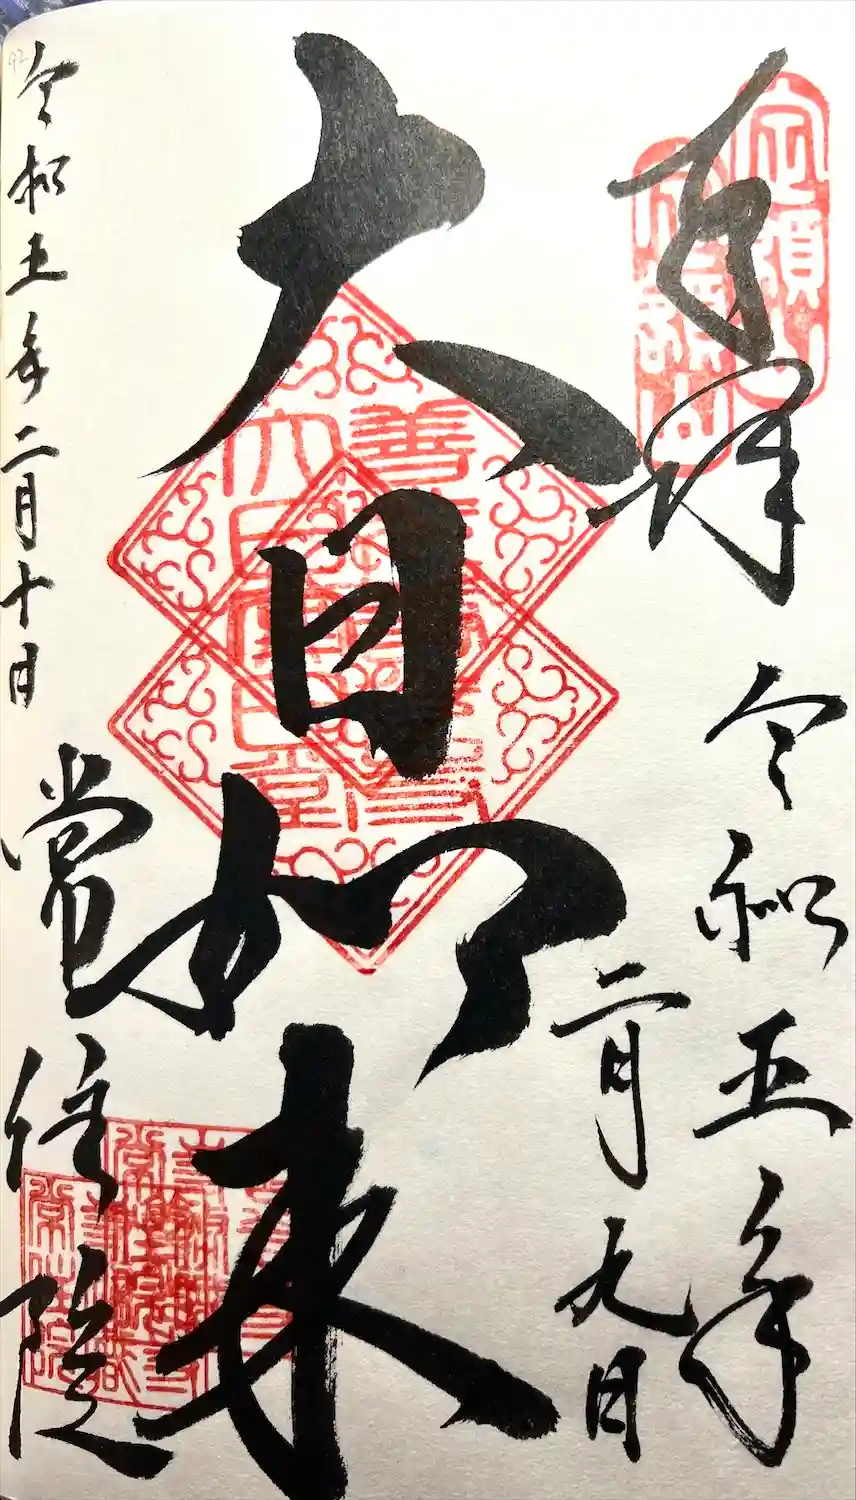 拝
令和五年
二月九日
大日如来
常住院
令和五年二月十日
定額山